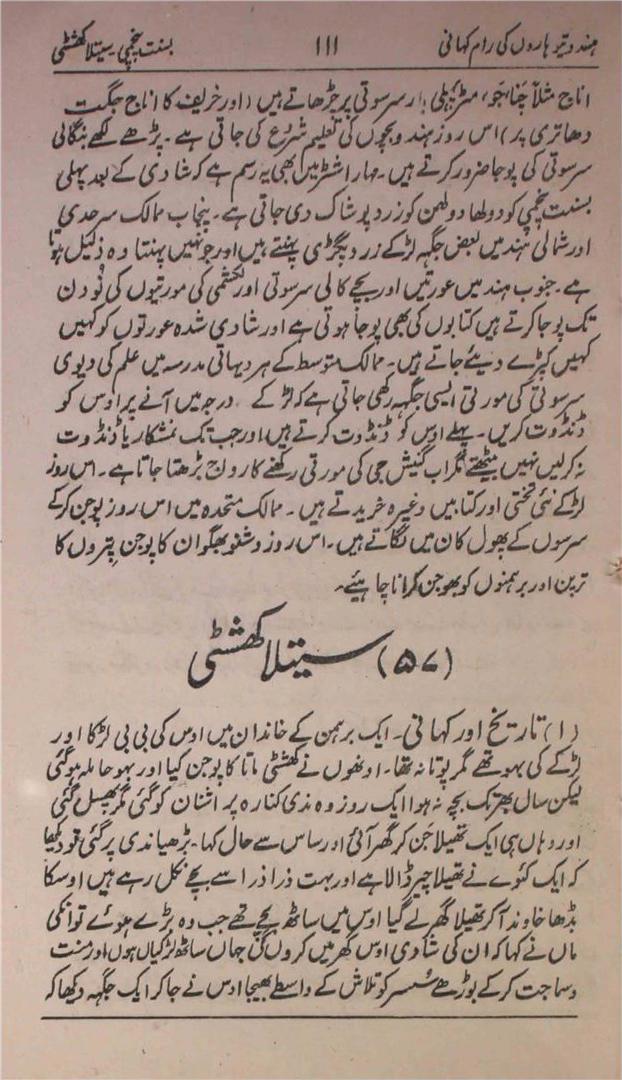 ہندو تیوہاروں کی رام کہانی
۱۱۱
بسنت پنچمی سیتلا کھشٹی
اناج مثلاً چنا، جَو، مٹر پھلی دار سرسوتی پر چڑھاتے ہیں (اور خریف کا اناج جگت
دھاتری پر) اس روز ہندو بچوں کی تعلیم شروع کی جاتی ہے۔ پڑھے لکھے بنگالی
سرسوتی کی پوجا ضرور کرتے ہیں۔ مہاراشٹر میں بھی یہ رسم ہے کہ شادی کے بعد پہلی
بسنت پنچمی کو دولھا دولھن کو زرد پوشاک دی جاتی ہے۔ پنجاب ممالک سرحدی
اور شمالی ہند میں بعض جگہہ لڑکے زرد پگڑی پہنتے ہیں اور جو نہیں پہنتا وہ ذلیل ہوتا
ہے۔ جنوب ہند میں عورتیں اور بچے کالی سرسوتی اور لکشمی کی مورتیوں کی نَو دن
تک پوجا کرتے ہیں کتابوں کی بھی پوجا ہوتی ہے اور شادی شدہ عورتوں کو کہیں
کہیں کپڑے دیئے جاتے ہیں۔ ممالک متوسط کے ہر دیہاتی مدرسہ میں علم کی دیوی
سرسوتی کی مورتی ایسی جگہہ رکھی جاتی ہے کہ لڑکے درجہ میں آنے پر اوس کو
ڈنڈوت کریں۔ پہلے اوس کو ڈنڈوت کرتے ہیں اور جب تک نمشکار یا ڈنڈوت
نہ کر لیں نہیں بیٹھتے مگر اب گنیش جی کی مورتی رکھنے کا رواج بڑھتا جاتا ہے۔ اس روز
لڑکے نئی تختی اور کتابیں وغیرہ خریدتے ہیں۔ ممالک متحدہ میں اس روز پوجن کر کے
سرسوں کے پھول کان میں لگاتے ہیں۔ اس روز وشنو بھگوان کا پوجن پتروں کا
ترپن اور برہمنوں کو بھوجن کرانا چاہیئے۔
(۵۷) سیتلا کھشٹی
(۱) تاریخ اور کہانی۔ ایک برہمن کے خاندان میں اوس کی بی بی لڑکا اور
لڑکے کی بہو تھے مگر پوتا نہ تھا۔ اونھوں نے کھشٹی ماتا کا پوجن کیا اور بہو حاملہ ہو گئی
لیکن سال بھر تک بچہ نہ ہوا ایک روز وہ ندی کنارہ پر اشنان کو گئی مگر پھسل گئی
اور وہاں ہی ایک تھیلا جَن کر گھر آئی اور ساس سے حال کہا۔ بڑھیا ندی پر گئی تو دیکھا
کہ ایک کوّے نے تھیلا چیر ڈالا ہے اور بہت ذرا ذرا سے بچے نکل رہے ہیں اوسکا
بڈھا خاوند آکر تھیلا گھر لے گیا اوس میں ساٹھ بچے تھے جب وہ بڑے ہوئے تو انکی
ماں نے کہا کہ ان کی شادی اوس گھر میں کروں گی جہاں ساٹھ لڑکیاں ہوں اور منت
و سماجت کر کے بوڑھے سُسر کو تلاش کے واسطے بھیجا اوس نے جا کر ایک جگہہ دیکھا کہ